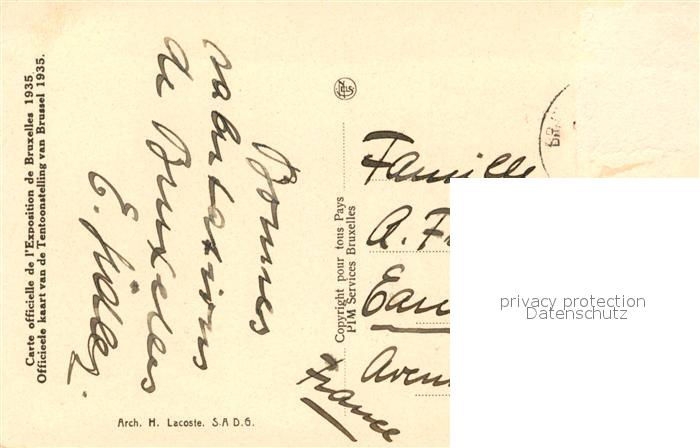 Carte officielle de l'Exposition de Bruxelles 1935
Officieele kaart van de Tentoonstelling van Brussel 1935.
Bonnes
salutations
de Bruxelles
Arch. H. Lacoste. S.A.D.G.
Copyright pour tous Pays
PIM Services Bruxelles
Famille
A.
France
privacy protection
Datenschutz